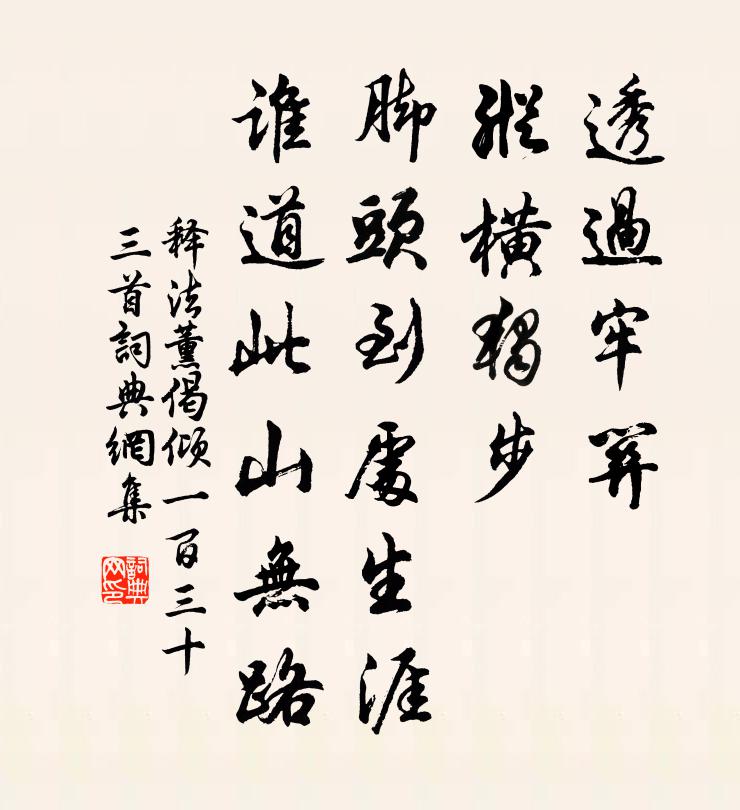 透過牢關
縱橫獨步
脚頭到處生涯
誰道此山無路
释法薰偈傾一百三十
三首詞典網集
詞典
网印